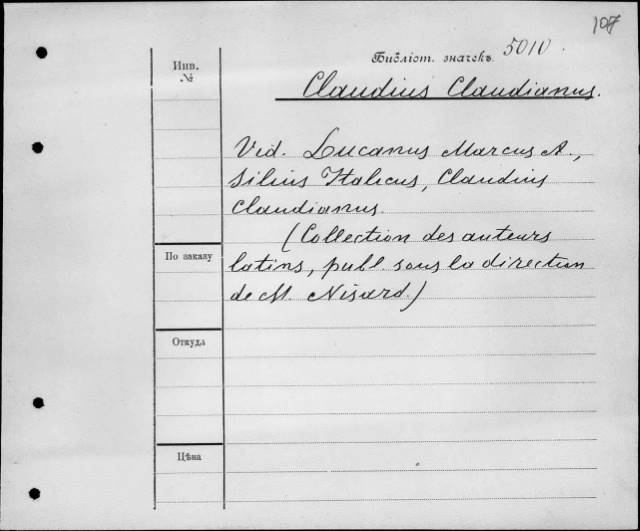 107
Инв.
№
Библіот. значекъ 5010.
Claudius Claudianus.
Vid. Lucanus Marcus A.,
Silius Italicus, Claudius
Claudianus.
(Collection des auteurs
latins, publ. sous la direction
de M. Nisard.)
По заказу
Откуда
Цѣна